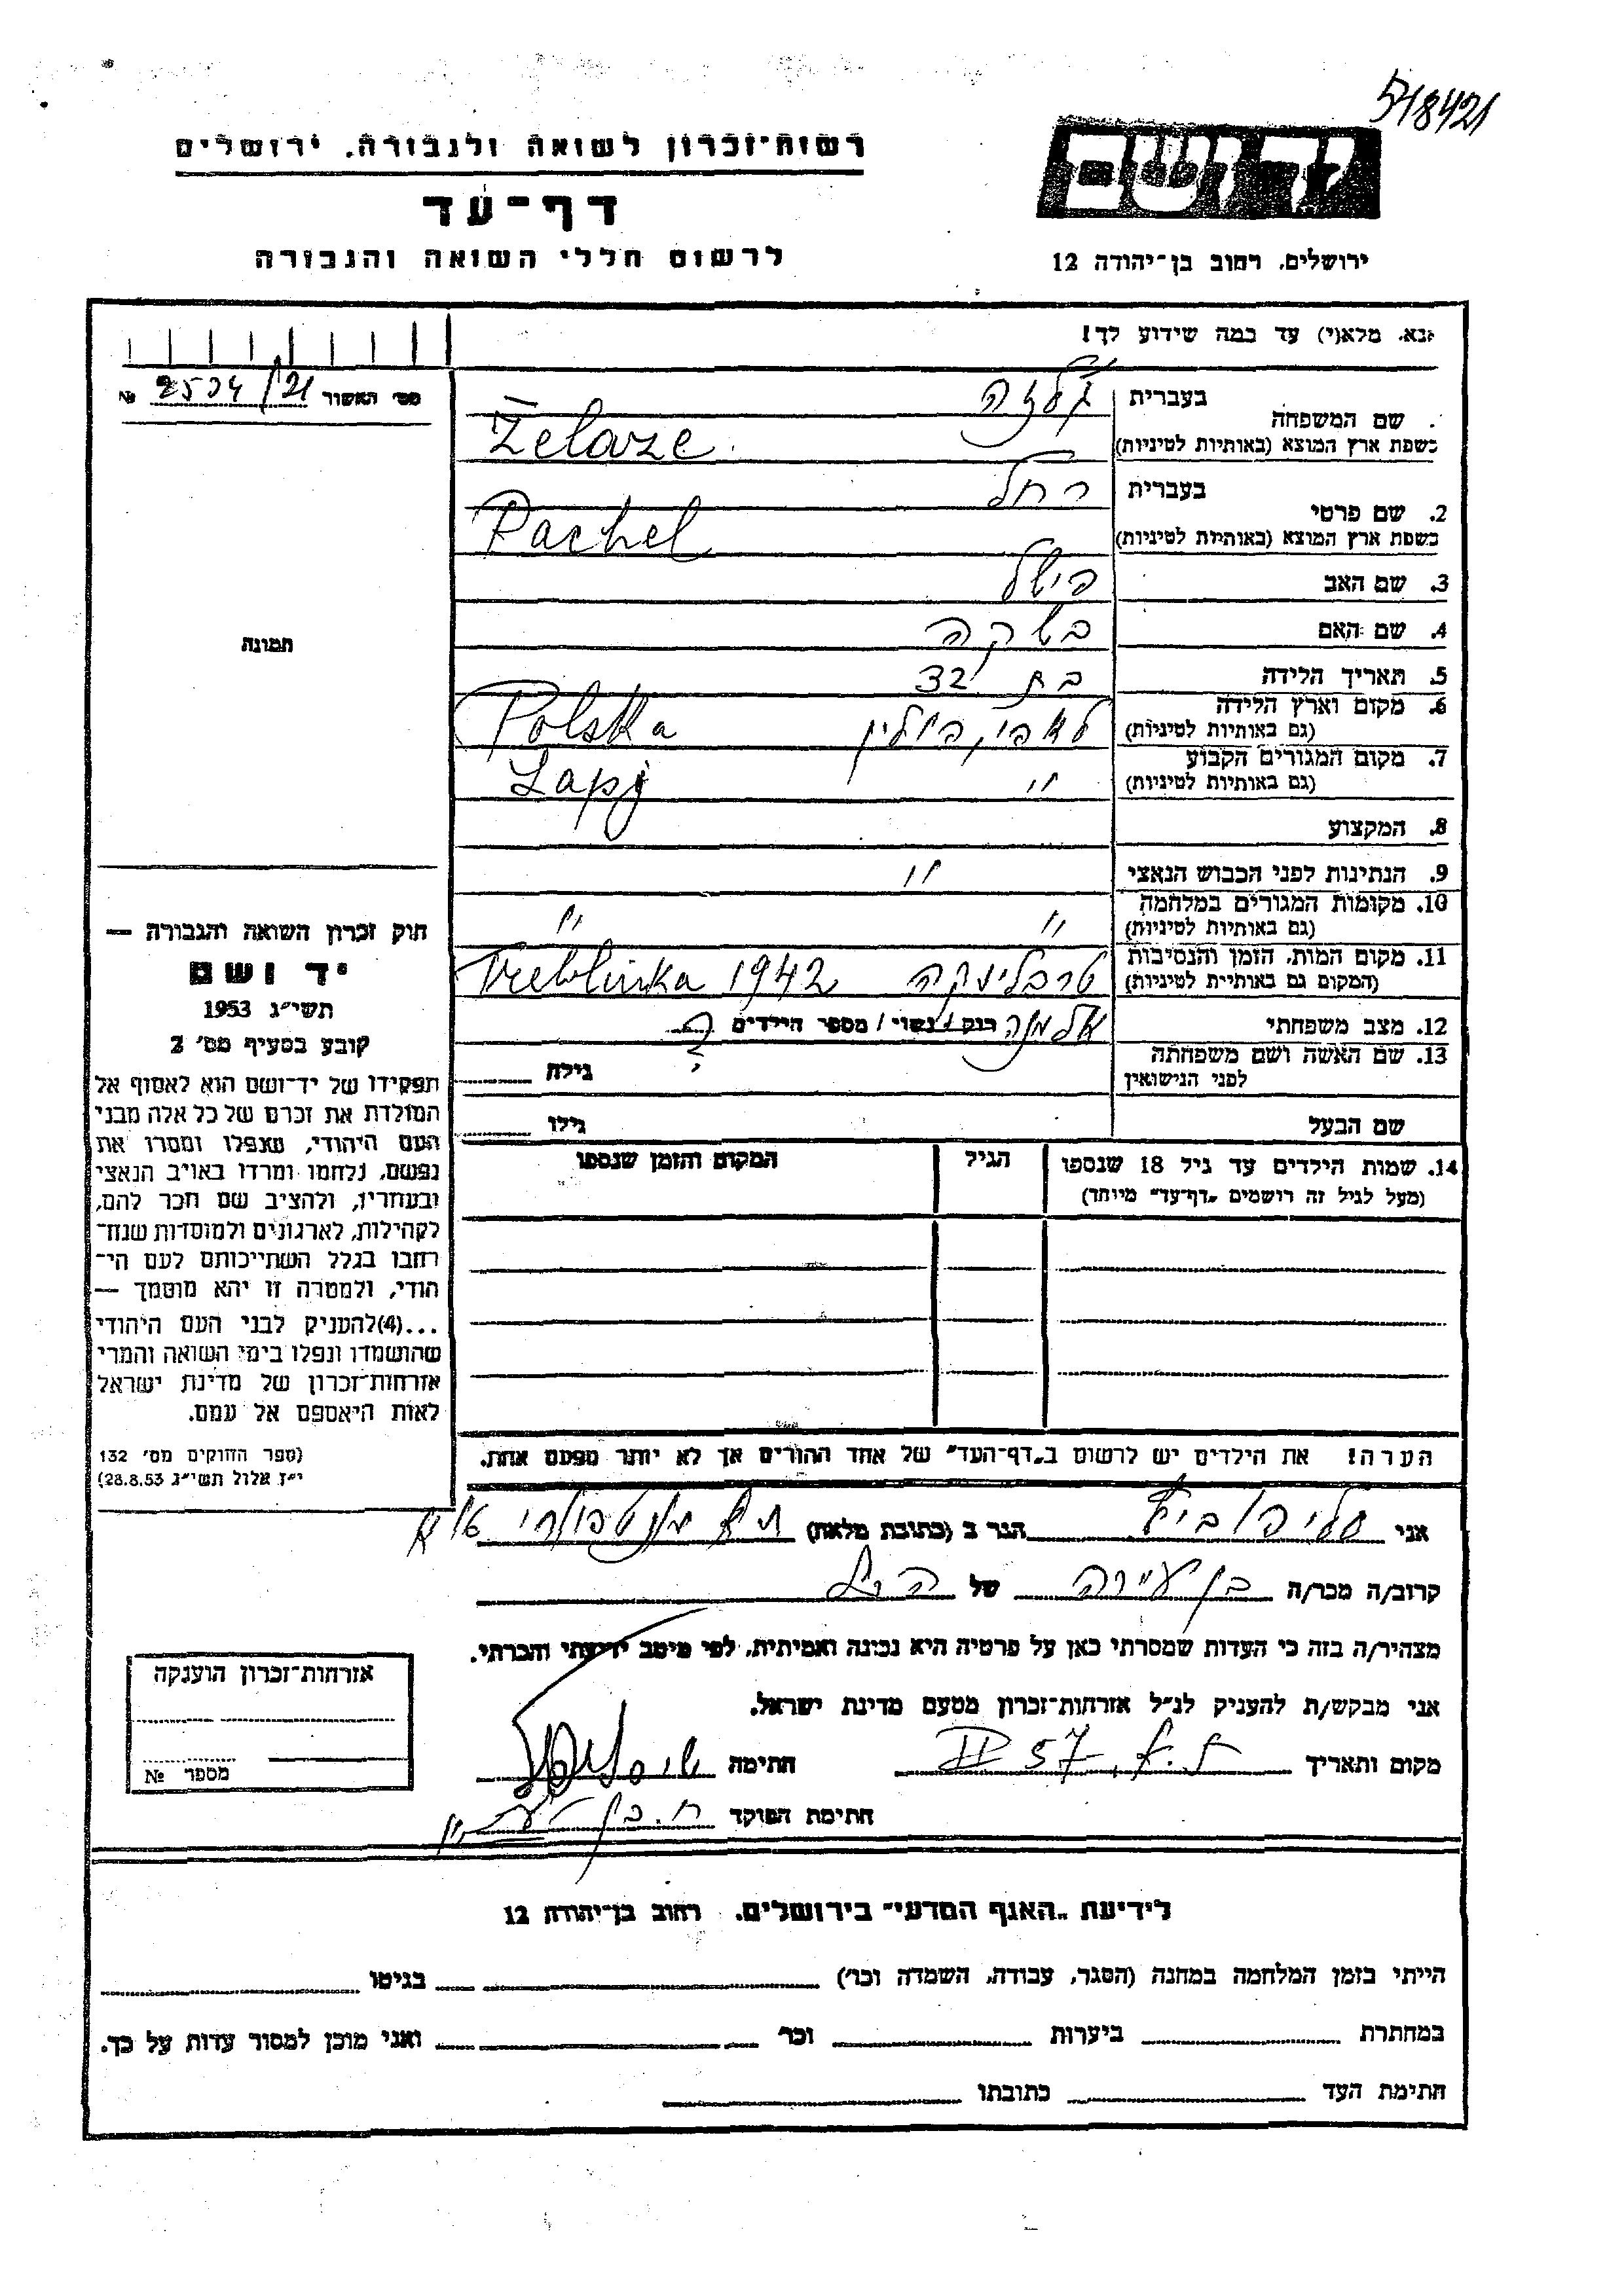 518421
יד ושם
ירושלים, רחוב בן־יהודה 12
רשות־זכרון לשואה ולגבורה. ירושלים
דף־עד
לרשום חללי השואה והגבורה
נא. מלא(י) עד כמה שידוע לך!
מס׳ האשור 2504/21 №
שם המשפחה
בעברית
כשפת ארץ המוצא (באותיות לטיניות) Żelaze
2. שם פרטי
בעברית רחל
כשפת ארץ המוצא (באותיות לטיניות) Rachel
3. שם האב פישל
4. שם האם
5. תאריך הלידה בת 32
6. מקום וארץ הלידה
(גם באותיות לטיניות) לאפי, פולין Polska
7. מקום המגורים הקבוע
(גם באותיות לטיניות) " Łapy
8. המקצוע
9. הנתינות לפני הכבוש הנאצי "
10. מקומות המגורים במלחמה
(גם באותיות לטיניות) " "
11. מקום המות, הזמן והנסיבות
(המקום גם באותיית לטיניות) טרבלינקה Treblinka 1942
12. מצב משפחתי אלמנה רוק / נשוי / מספר הילדים ?
13. שם האשה ושם משפחתה
לפני הנישואין גילה
שם הבעל גילו
14. שמות הילדים עד גיל 18 שנספו
(מעל לגיל זה רושמים „דף־עד״ מיוחד)
הגיל
המקום והזמן שנספו
הערה! את הילדים יש לרשום ב„דף־העד״ של אחד ההורים אך לא יותר מפעם אחת.
תמונה
חוק זכרון השואה והגבורה —
יד ושם
תשי״ג 1953
קובע בסעיף מס׳ 2
תפקידו של יד־ושם הוא לאסוף אל
המולדת את זכרם של כל אלה מבני
העם היהודי, שנפלו ומסרו את
נפשם, נלחמו ומרדו באויב הנאצי
ובעוזריו, ולהציב שם וזכר להם,
לקהילות, לארגונים ולמוסדות שנח־
רחבו בגלל השתייכותם לעם הי־
הודי, ולמטרה זו יהא מוסמך —
...(4)להעניק לבני העם היהודי
שהושמדו ונפלו בימי השואה והמרי
אזרחות־זכרון של מדינת ישראל
לאות היאספם אל עמם.
(ספר החוקים מס׳ 132
י״ז אלול תשי״ג 28.8.53)
אני הגר ב (כתובת מלאה)
קרוב/ה מכר/ה בן עירה של הנ״ל
מצהיר/ה בזה כי העדות שמסרתי כאן על פרטיה היא נכונה ואמיתית, לפי מיטב ידיעתי והכרתי.
אני מבקש/ת להעניק לנ״ל אזרחות־זכרון מטעם מדינת ישראל.
מקום ותאריך ת.א. 57 II חתימה
חתימת הפוקד
אזרחות־זכרון הוענקה
מספר №
לידיעת „האגף המדעי״ בירושלים. רחוב בן־יהודה 12
הייתי בזמן המלחמה במחנה (הסגר, עבודה, השמדה וכו׳) בגיטו
במחתרת ביערות וכו׳ ואני מוכן למסור עדות על כך.
חתימת העד כתובתו